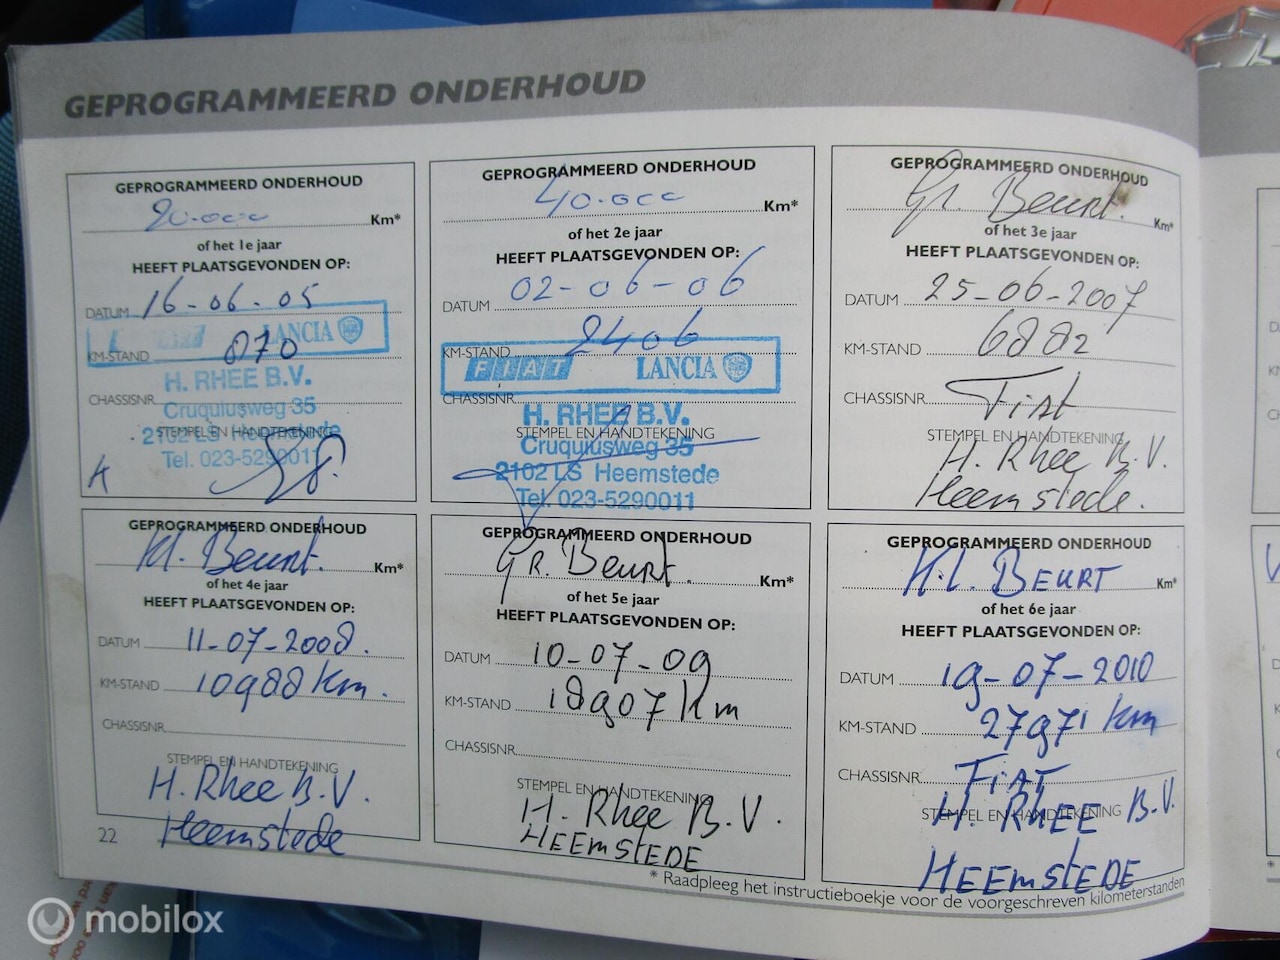 GEPROGRAMMEERD ONDERHOUD
GEPROGRAMMEERD ONDERHOUD
20.000 Km*
of het 1e jaar
HEEFT PLAATSGEVONDEN OP:
DATUM 16-06-05
LANCIA
KM-STAND 870
H. RHEE B.V.
CHASSISNR.
Cruquiusweg 35
STEMPEL EN HANDTEKENING
2102 LS Heemstede
Tel. 023-5290011
A
GEPROGRAMMEERD ONDERHOUD
40.000 Km*
of het 2e jaar
HEEFT PLAATSGEVONDEN OP:
DATUM 02-06-06
KM-STAND 2406
FIAT LANCIA
CHASSISNR.
H. RHEE B.V.
STEMPEL EN HANDTEKENING
Cruquiusweg 35
2102 LS Heemstede
Tel. 023-5290011
GEPROGRAMMEERD ONDERHOUD
Gr. Beurt. Km*
of het 3e jaar
HEEFT PLAATSGEVONDEN OP:
DATUM 25-06-2007
KM-STAND 6882
CHASSISNR. Fiat
STEMPEL EN HANDTEKENING
H. Rhee B.V.
Heemstede.
GEPROGRAMMEERD ONDERHOUD
Kl. Beurt. Km*
of het 4e jaar
HEEFT PLAATSGEVONDEN OP:
DATUM 11-07-2008.
KM-STAND 10988 Km.
CHASSISNR.
STEMPEL EN HANDTEKENING
H. Rhee B.V.
Heemstede
GEPROGRAMMEERD ONDERHOUD
GR. Beurt. Km*
of het 5e jaar
HEEFT PLAATSGEVONDEN OP:
DATUM 10-07-09
KM-STAND 18907 Km
CHASSISNR.
STEMPEL EN HANDTEKENING
H. Rhee B.V.
HEEmstEDE
GEPROGRAMMEERD ONDERHOUD
K.L. BEURT Km*
of het 6e jaar
HEEFT PLAATSGEVONDEN OP:
DATUM 19-07-2010
KM-STAND 27971 Km
CHASSISNR. FiAT
STEMPEL EN HANDTEKENING
H. RHEE B.V.
HEEmstEDE
22
* Raadpleeg het instructieboekje voor de voorgeschreven kilometerstanden
mobilox